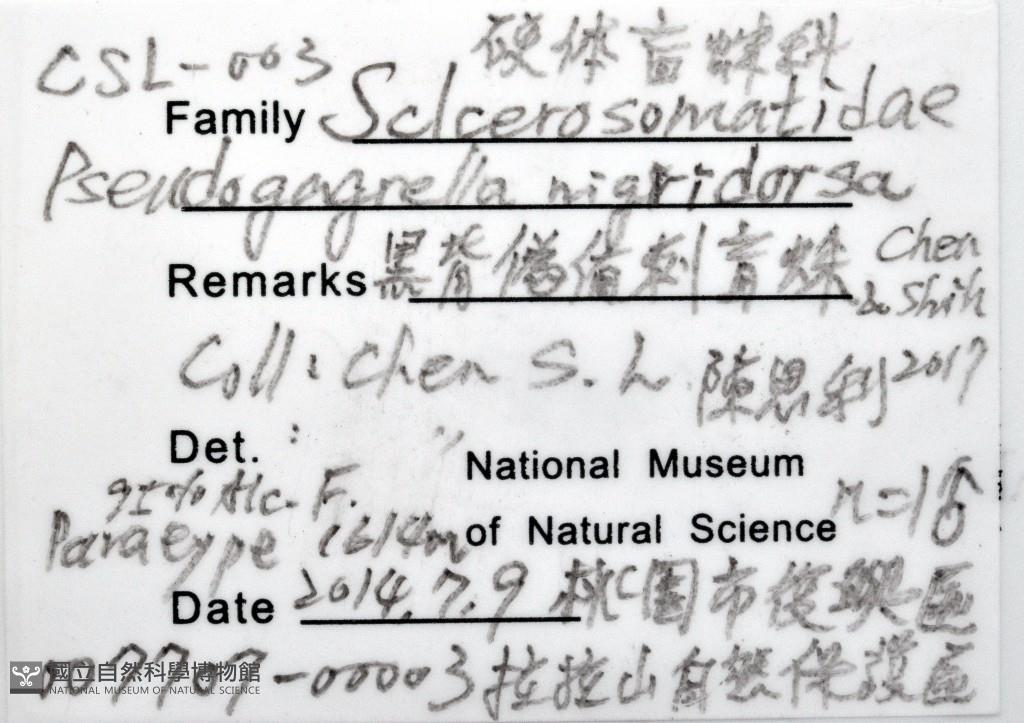 CSL-003 硬体盲蛛科
Family Sclcerosomatidae
Pseudogagrella nigridorsa
Remarks 黑背偽脊刺盲蛛 Chen & Shih
Coll: Chen S. L. 陳思利 2017
Det. : 〃 National Museum
95% Alc. F.
Paratype 1614m of Natural Science n=1♂
Date 2014.7.9 桃園市復興區
-00003 拉拉山自然保護區
國立自然科學博物館
NATIONAL MUSEUM OF NATURAL SCIENCE